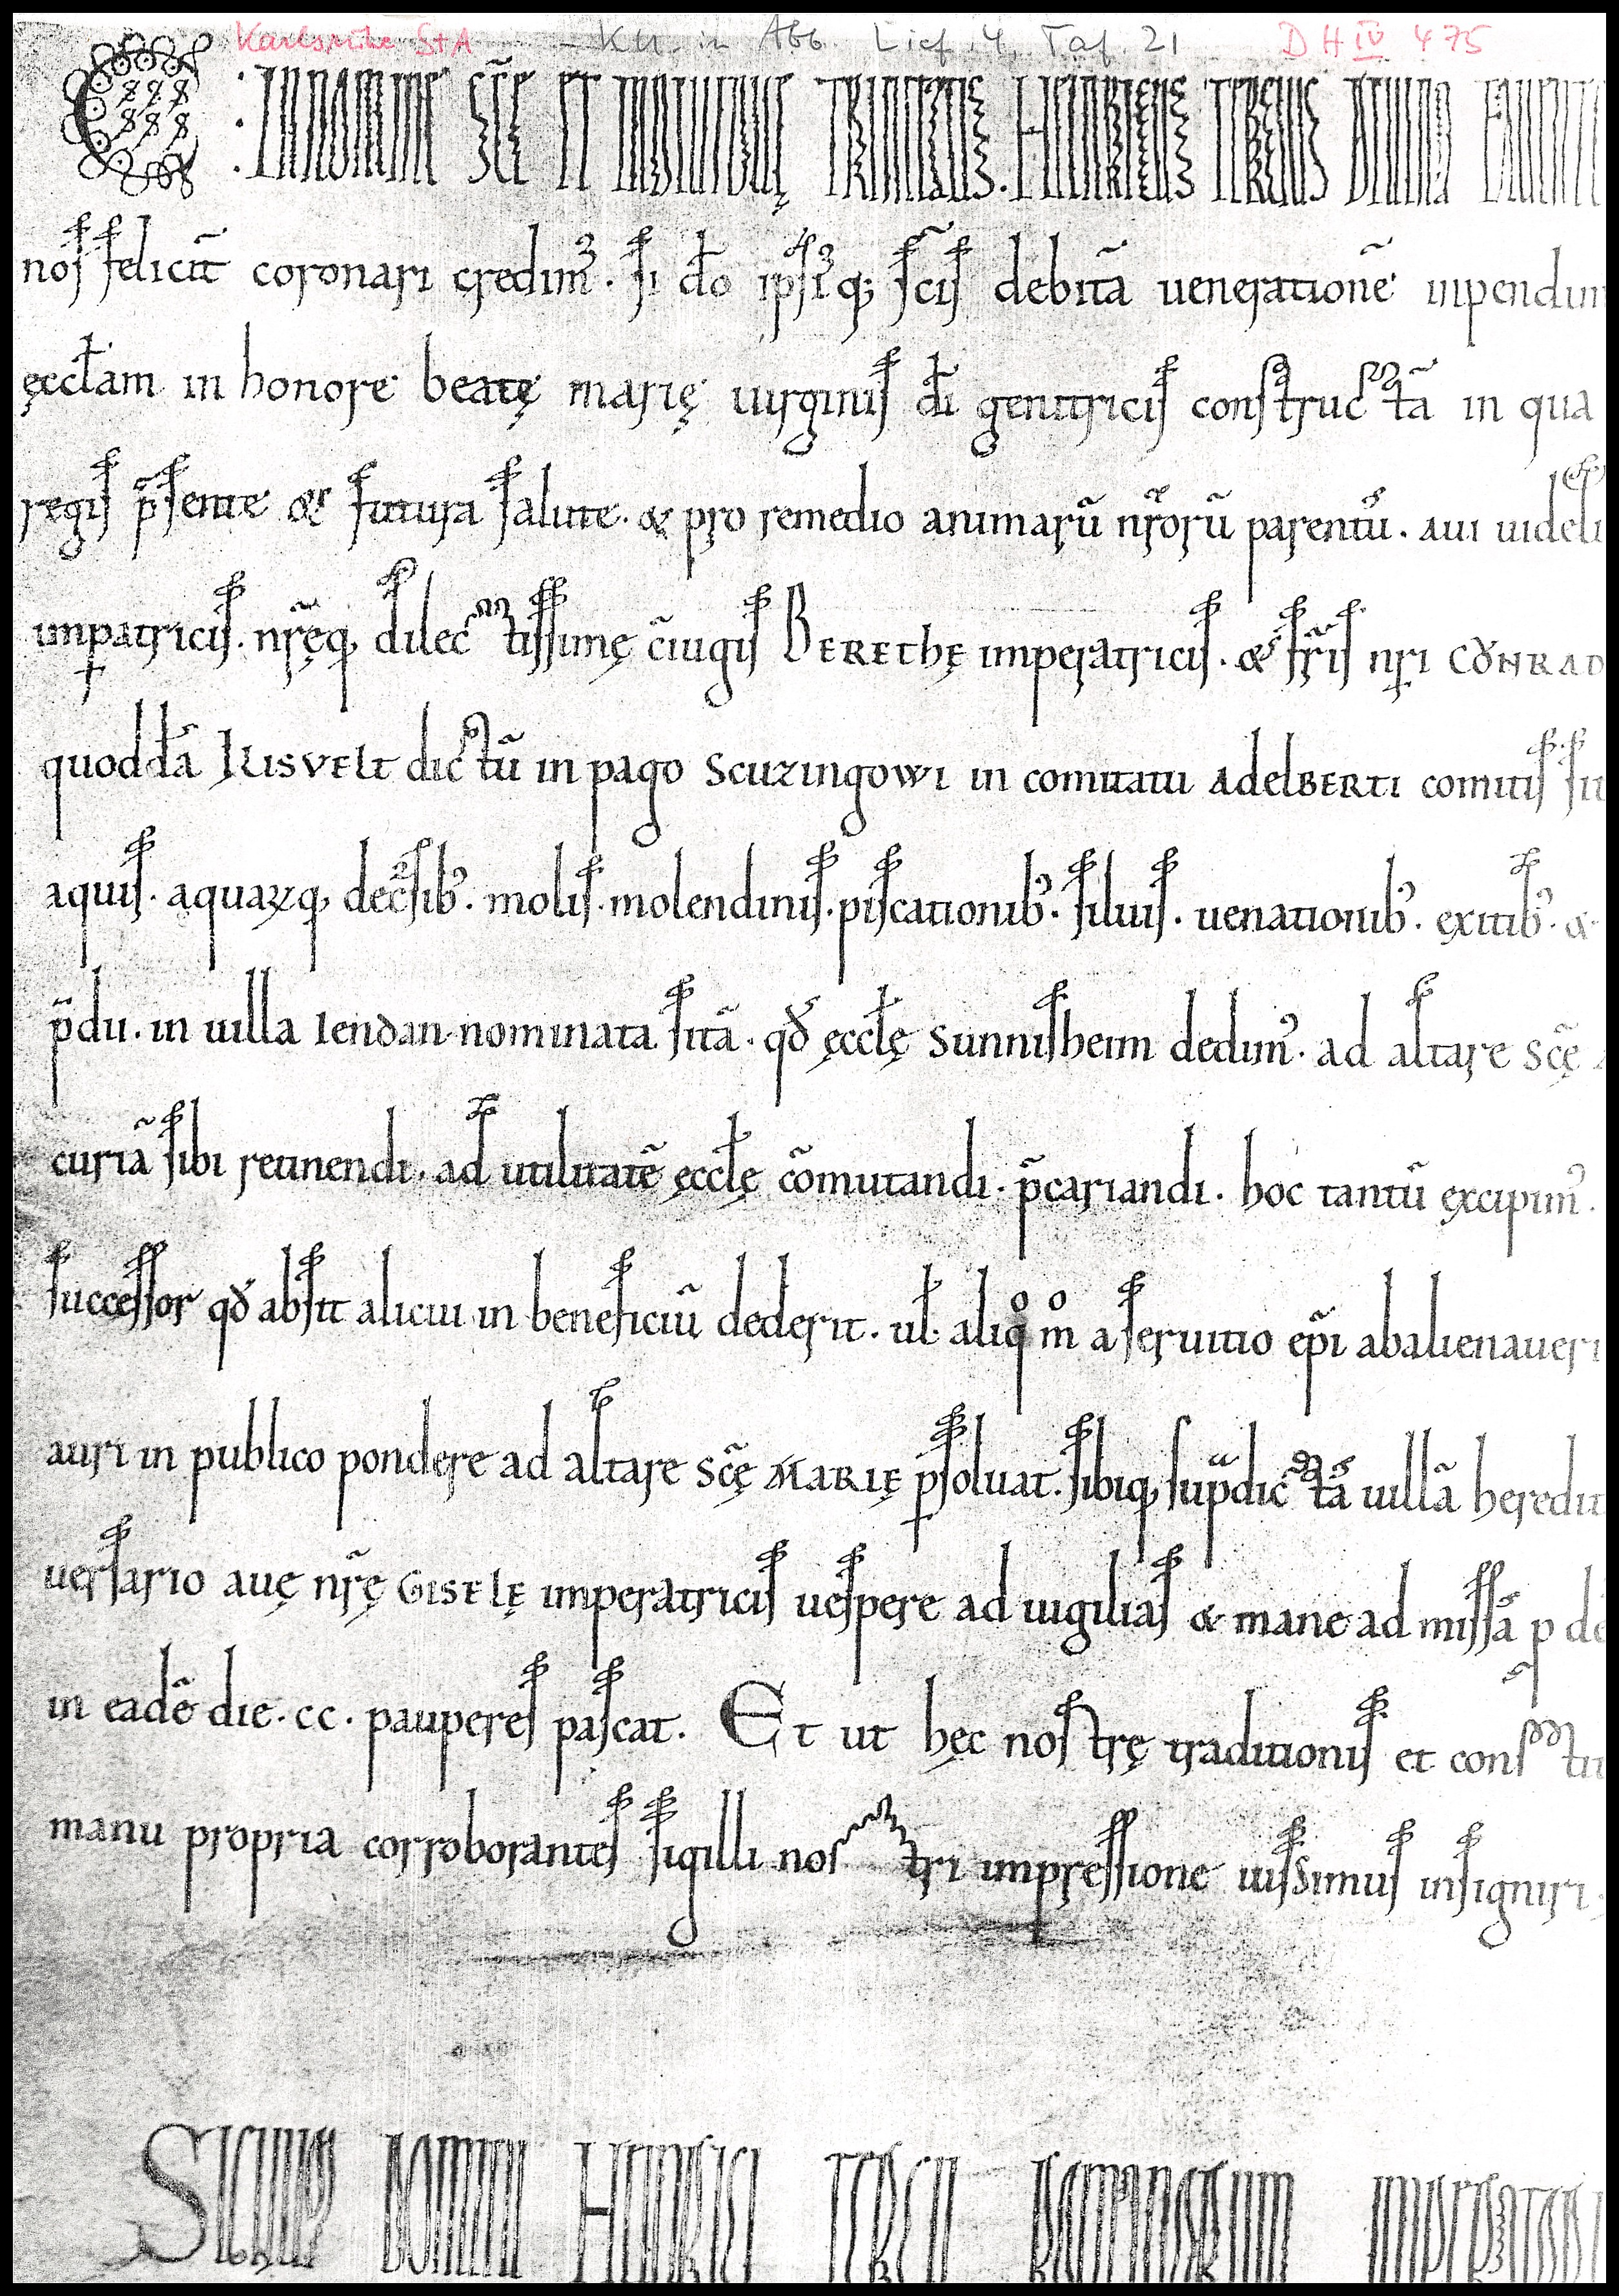 Karlsruhe StA – KU. in Abb. Lief. 4, Taf. 21 DH IV 475
: IN NOMINE SC̄E ET INDIVIDUĘ TRINITATIS. HEINRICUS TERCIUS DIVINA FAUENTE
nos felicit̄ coronari credim᾽. si d̄o ipsi᾽q; sc̄is debitā venerationē inpendim
ęccl̄am in honore beatę marię uirginis d̄i genitricis constructā in qua
regis p̄sente & futura salute. & pro remedio animarū nr̄orū parentū. aui uideli
imꝑatricis. nr̄ęq; dilectissimę c̄iugis BERETHĘ imperatricis. & fr̄is nr̄i CŎNRAD
quoddā KISVELT dictū in pago SCUZINGOWI in comitatu ADELBERTI comitis sit
aquis. aquaꝝq; dec̄sib᾽. molis. molendinis. piscationib᾽. siluis. uenationib᾽. exitib᾽. &
p̄diū. in uilla IENDAN nominata sitā. qđ ęccl̄ę sunnisheim dedim᾽. ad altare sc̄ę
curiā sibi retinendi. ad utilitatē ęccl̄ę c̄omutandi. p̄cariandi. hoc tantū excipim᾽.
successor qđ absit alicui in beneficiū dederit. ul̄. aliqͦ mͦ a seruitio ep̄i abalienaueri
auri in publico pondere ad altare sc̄ę MARIĘ ꝑsoluat. sibiq; sup̄dictā uillā heredit
uersario auę nr̄ę GISELĘ imperatricis uespere ad uigilias & mane ad missā p de
in eadē die. cc. pauperes pascat. Et ut hęc nostrę traditionis et constitu
manu propria corroborantes sigilli nostri impressione iussimus insigniri.
SIGNUM DOMINI HEINRICI TERCII ROMANORUM IMPERATORI